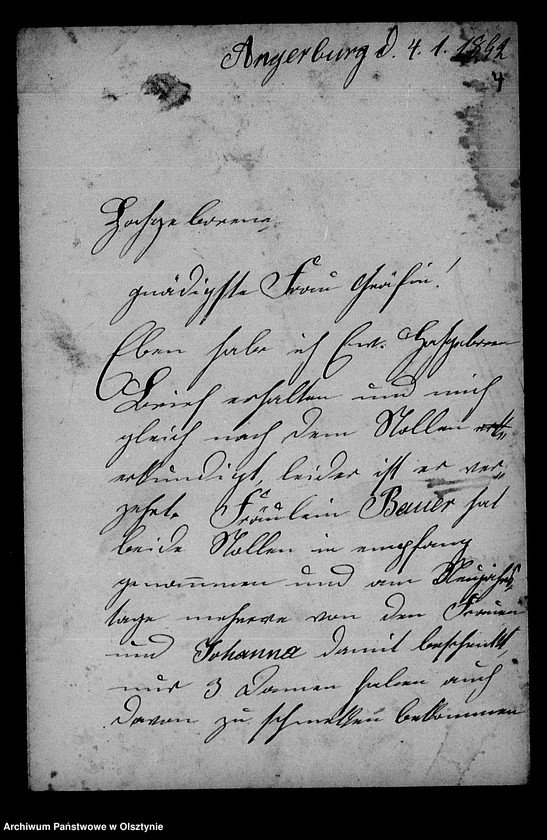 Angerburg d. 4. 1. 1892
4
Hochgeborene,
gnädigste Frau Gräfin!
Eben habe ich Ew. Hochgeboren
Brief erhalten und mich
gleich nach dem Stollen
erkundigt, leider ist er ver-
zehrt. Fräulein Bauer hat
beide Stollen in empfang
genommen und am Neujahrs-
tage mehrere von den Frauen
und Johanna damit beschenkt,
nur 3 Damen haben auch
davon zu schmecken bekommen
Archiwum Państwowe w Olsztynie